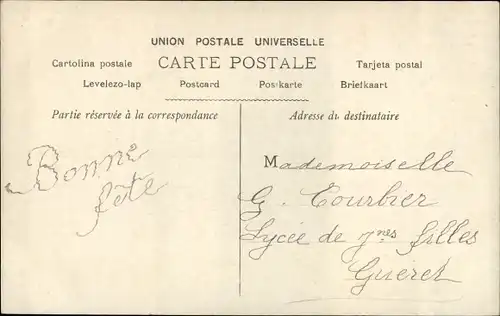 UNION POSTALE UNIVERSELLE
Cartolina postale CARTE POSTALE Tarjeta postal
Levelezo-lap Postcard Postkarte Briefkaart
Partie réservée à la correspondance
Adresse du destinataire
Bonne
fête
Mademoiselle
G. Courbier
Lycée de jnes filles
Guéret